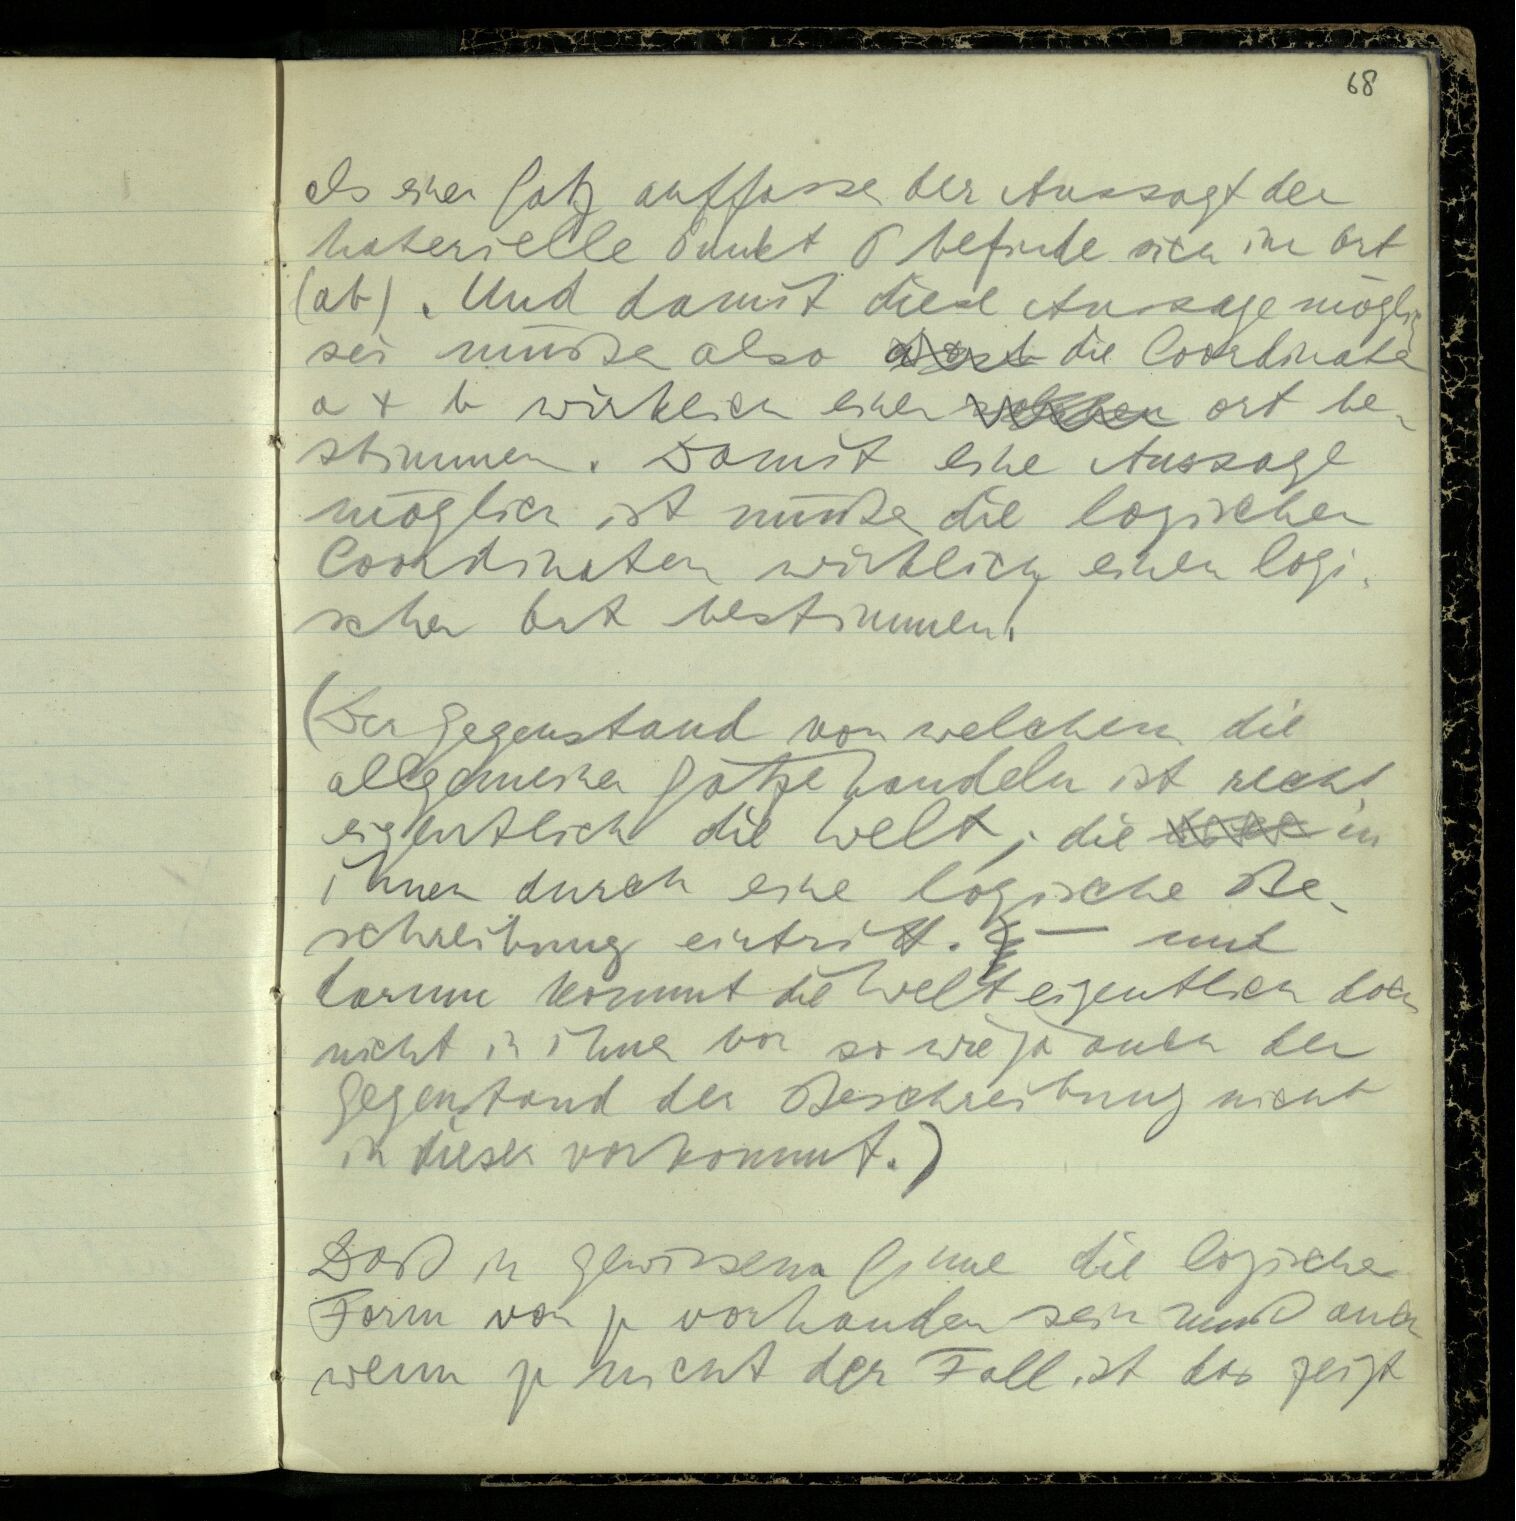 68
als einen Satz auffassen der Aussagt der
materielle Punkt P befinde sich im Ort
(ab). Und damit diese Aussage möglich
sei müßen also die Coordinaten
a & b wirklich einen Ort be-
stimmen. Damit eine Aussage
möglich ist müßen die logischen
Coordinaten wirklich einen logi-
schen Ort bestimmen!
(Der Gegenstand von welchem die
allgemeinen Sätze handeln ist recht
eigentlich die Welt; die in
ihnen durch eine logische Be-
schreibung eintritt. — und
darum kommt die Welt eigentlich doch
nicht in ihnen vor so wie ja auch der
Gegenstand der Beschreibung nicht
in dieser vorkommt.)
Daß in gewissem Sinne die logische
Form von p vorhanden sein muß auch
wenn p nicht der Fall ist das zeigt